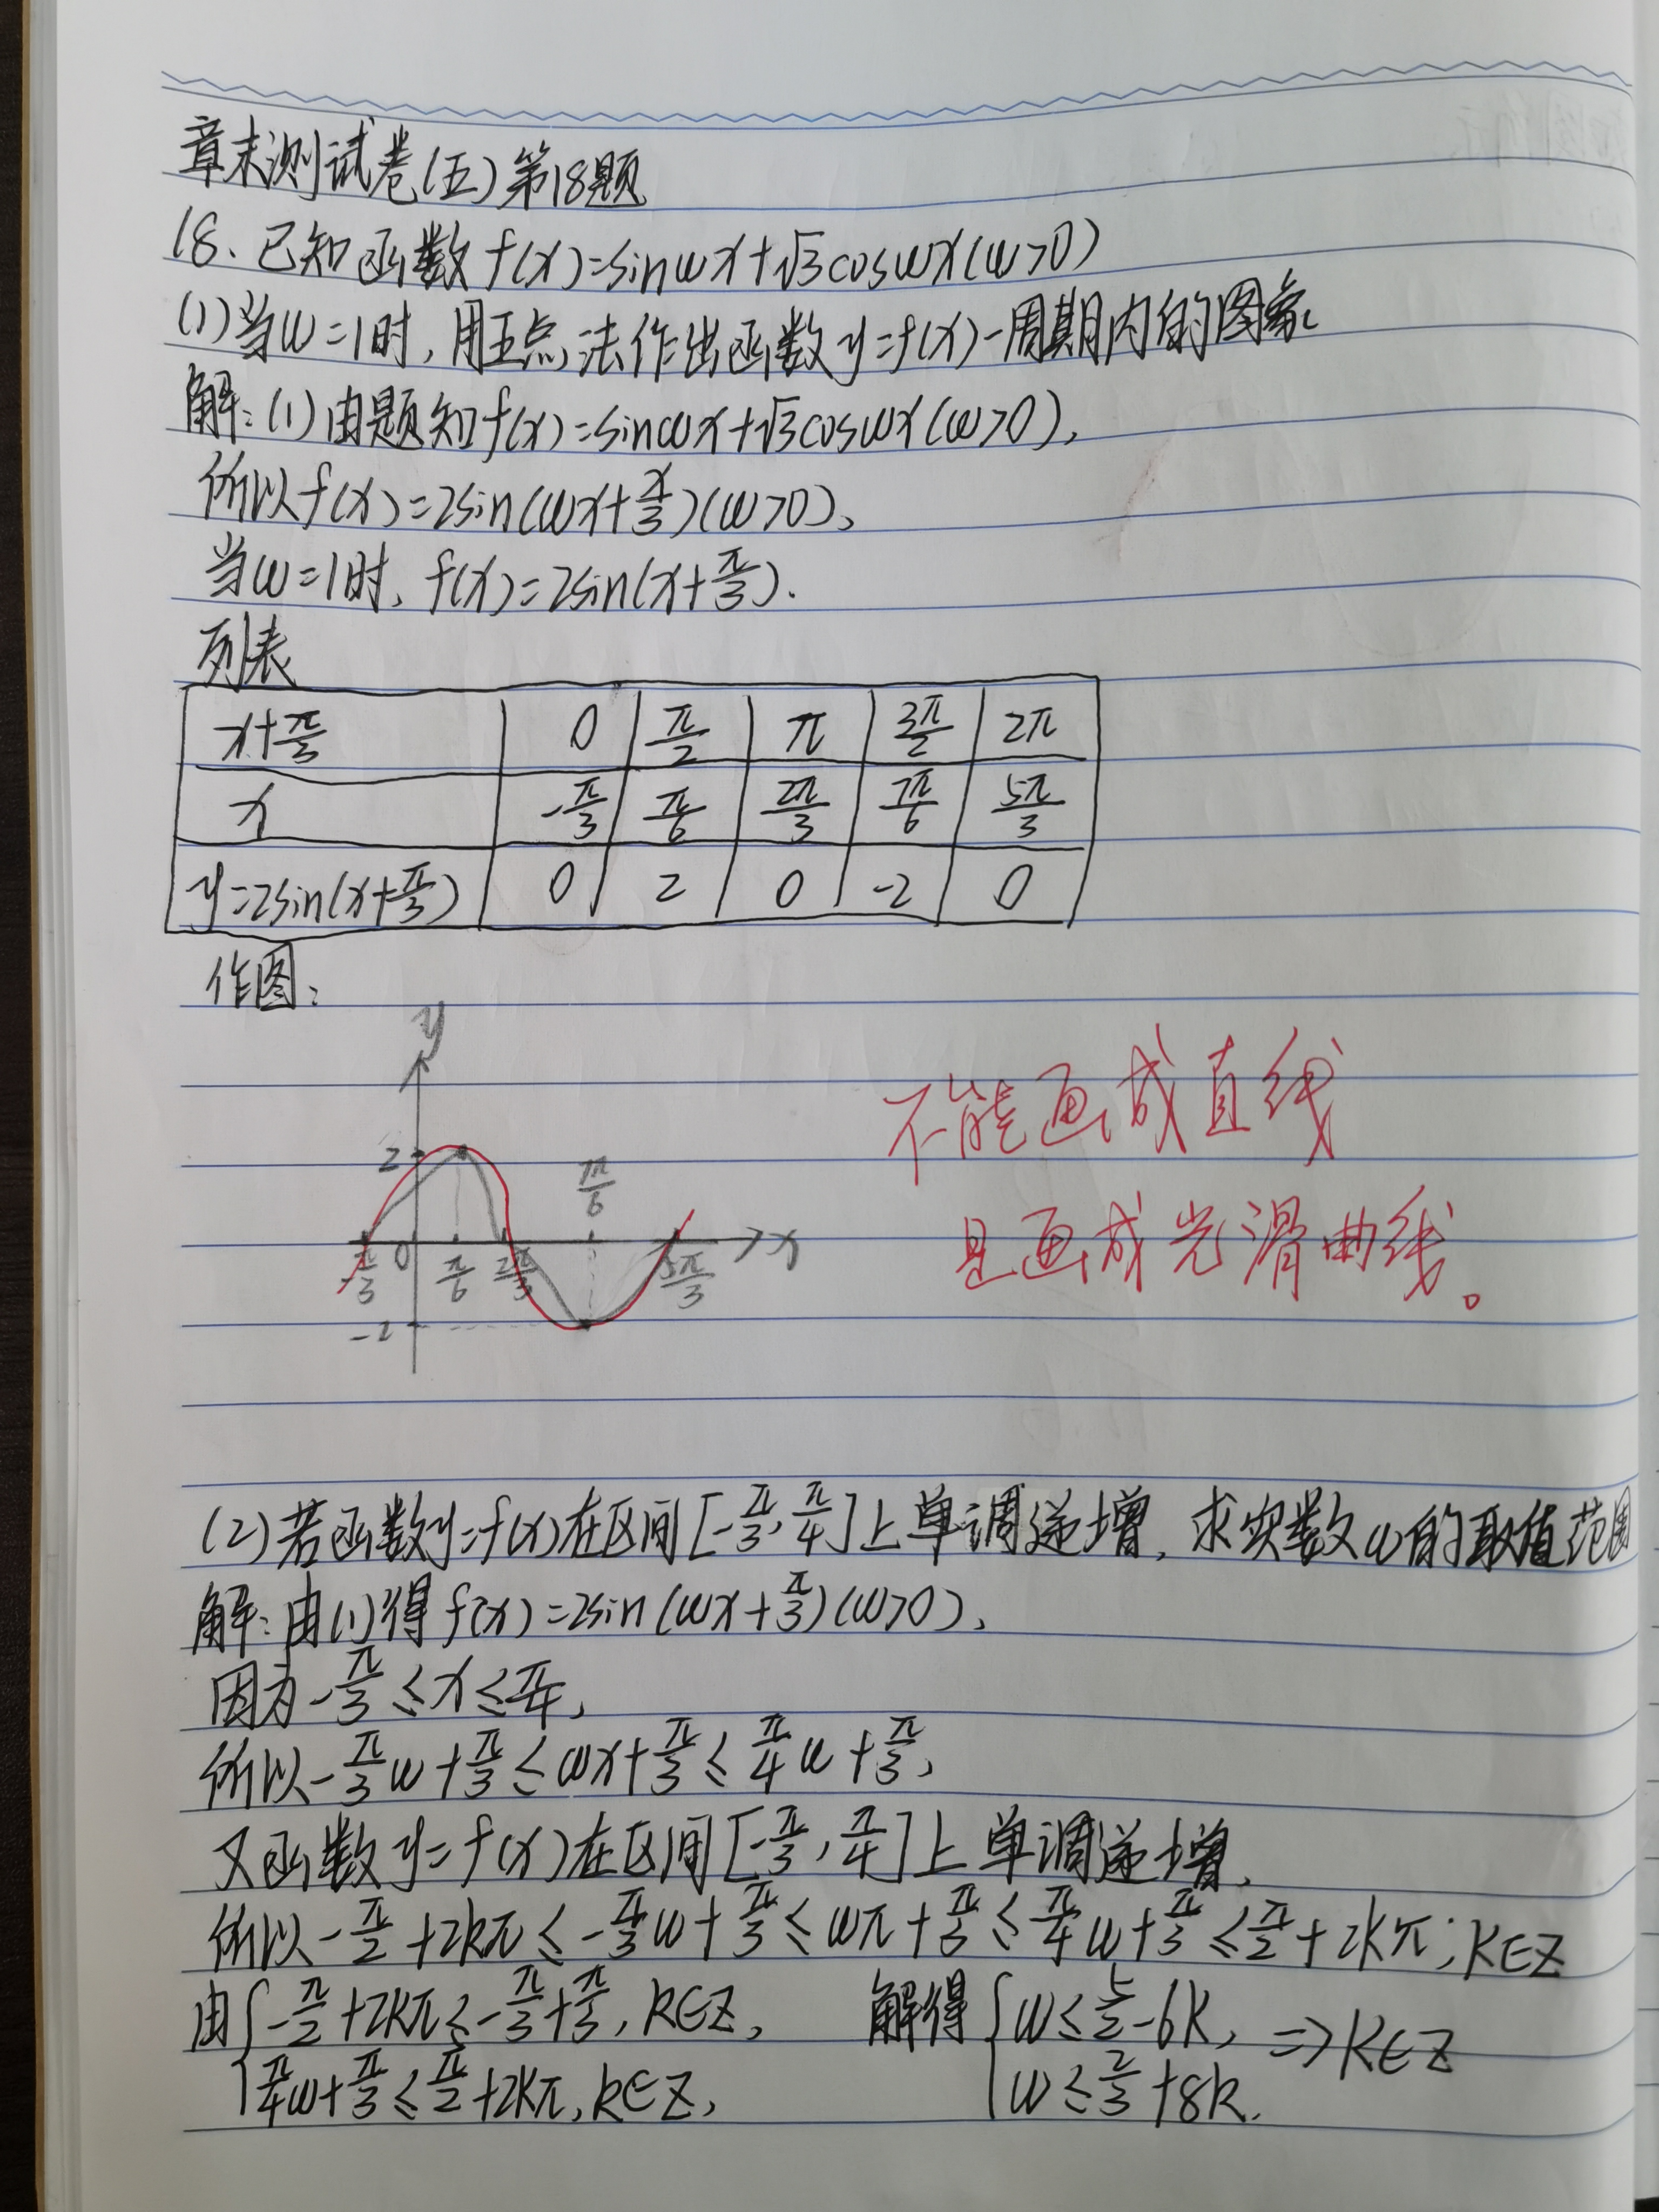 章末测试卷(五)第18题
18、已知函数f(x)=sinωx+√3cosωx(ω>0)
(1)当ω=1时,用五点法作出函数y=f(x)一周期内的图象。
解:(1)由题知f(x)=sinωx+√3cosωx(ω>0),
所以f(x)=2sin(ωx+π/3)(ω>0)、
当ω=1时,f(x)=2sin(x+π/3).
列表
x+π/3 0 π/2 π 3π/2 2π
x -π/3 π/6 2π/3 7π/6 5π/3
y=2sin(x+π/3) 0 2 0 -2 0
作图:
y
2
7π/6
-π/3 0 π/6 2π/3 5π/3 x
-2
不能画成直线
是画成光滑曲线。
(2)若函数y=f(x)在区间[-π/3,π/4]上单调递增,求实数ω的取值范围
解:由(1)得f(x)=2sin(ωx+π/3)(ω>0),
因为-π/3≤x≤π/4,
所以-π/3ω+π/3≤ωx+π/3≤π/4ω+π/3,
又函数y=f(x)在区间[-π/3,π/4]上单调递增,
所以-π/2+2kπ≤-π/3ω+π/3≤ωπ+π/3≤π/4ω+π/3≤π/2+2kπ;k∈Z
由{-π/2+2kπ≤-π/3+π/3,k∈Z, 解得{ω≤5/2-6k, =>k∈Z
π/4ω+π/3≤π/2+2kπ,k∈Z, ω≤2/3+8k.